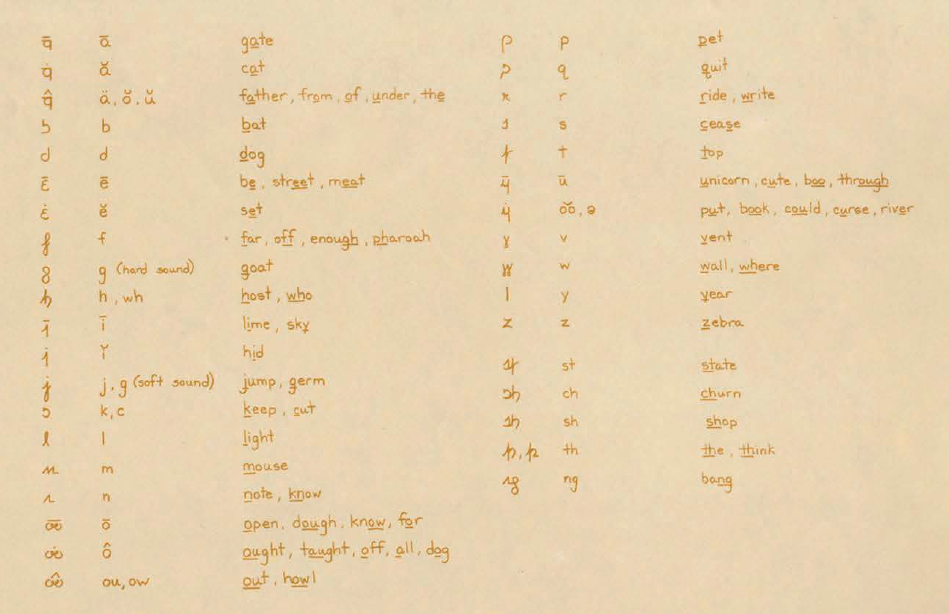 q̄ ā gate
q̇ ă cat
q̂ ä, ŏ, ŭ father, from, of, under, the
b bat
d d dog
ε̄ ē be, street, meat
ε̇ ĕ set
f far, off, enough, pharoah
8 g (hard sound) goat
h h, wh host, who
ī lime, sky
ĭ hid
j, g (soft sound) jump, germ
ɔ k, c keep, cut
l l light
m m mouse
n n note, know
ō open, dough, know, for
ô ought, taught, off, all, dog
ou, ow out, howl
p p pet
q quit
r ride, write
s cease
t top
ū unicorn, cute, boo, through
o͝o, ə put, book, could, curse, river
v vent
w w wall, where
l y year
z z zebra
st state
ch churn
sh shop
th the, think
ng bang